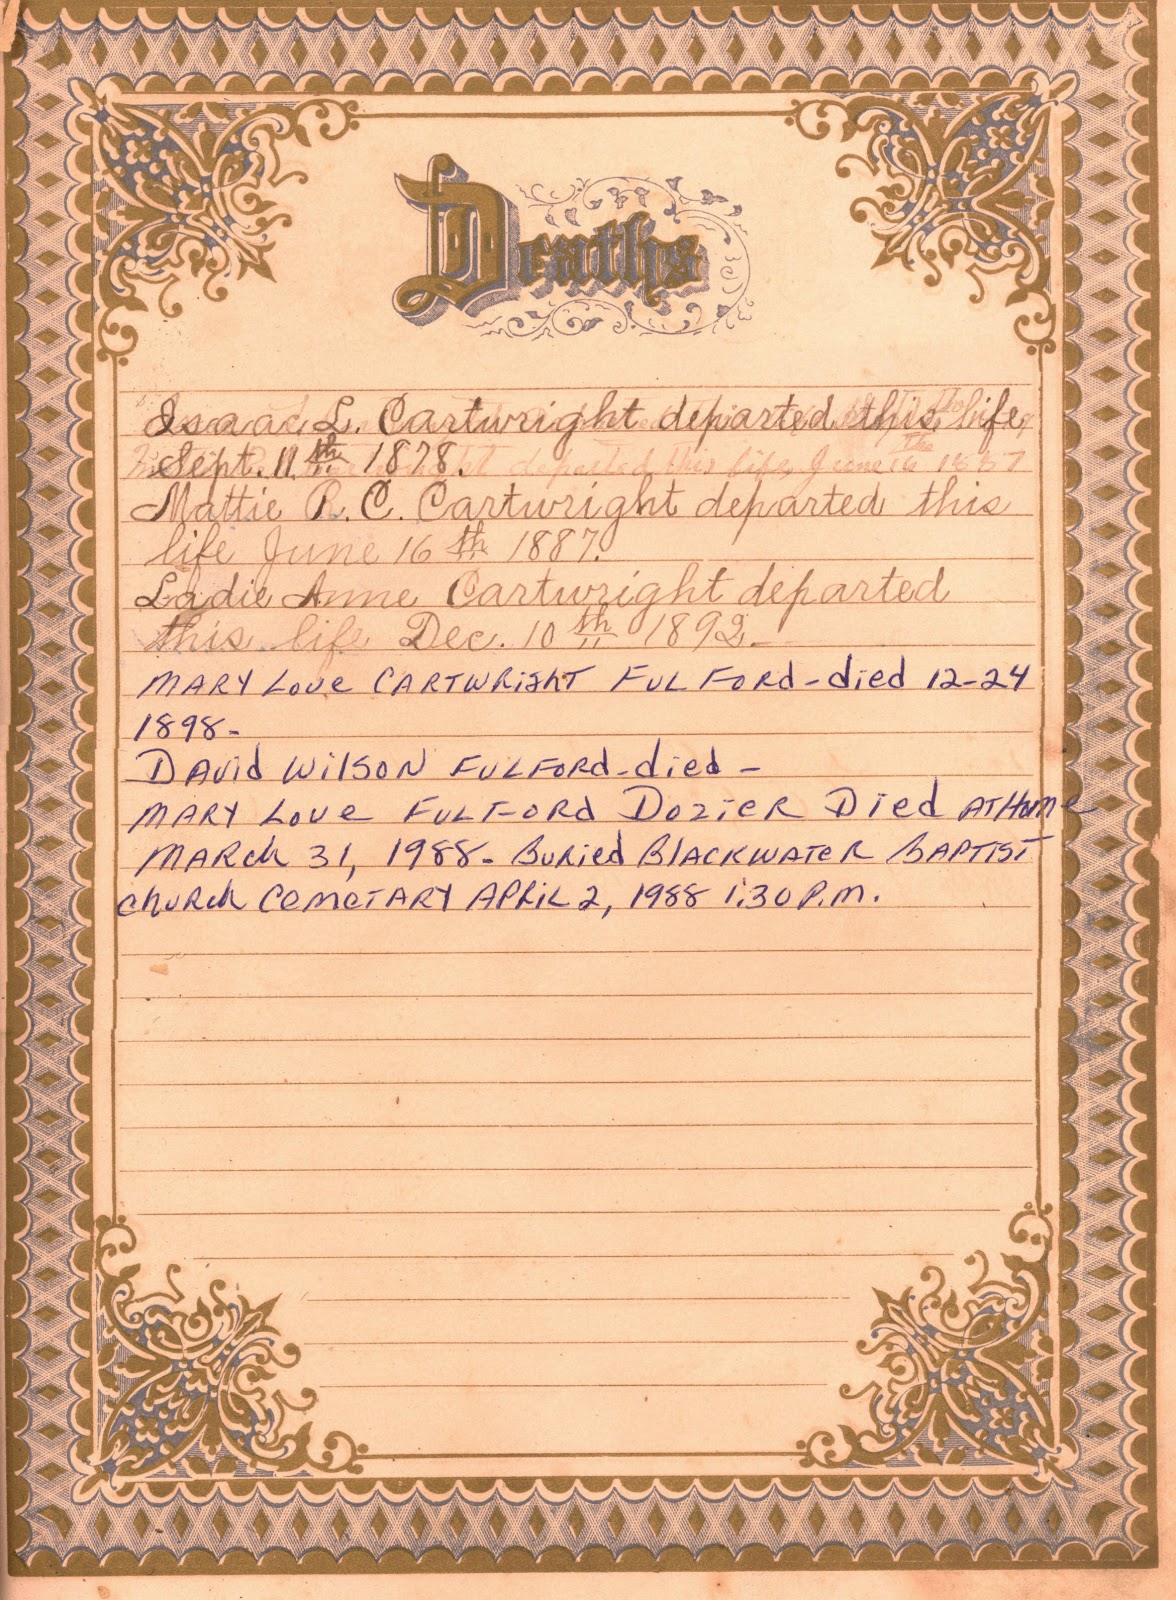 Deaths
Isaac L. Cartwright departed this life,
Sept. 11th 1878.
departed this life, June 16 the 1887
Mattie P. C. Cartwright departed this
life June 16th 1887.
Ladie Anne Cartwright departed
this life Dec. 10th 1892.
MARY Love CARTWRighT FULFORd - died 12-24
1898-
DAVid WilSON FULFORd - died -
MARY Love FULFORD DOZieR Died AT Home
MARch 31, 1988 - BURied BLACKWATER BAPTIST
chURch CemeTARY APRiL 2, 1988 1:30 P.m.